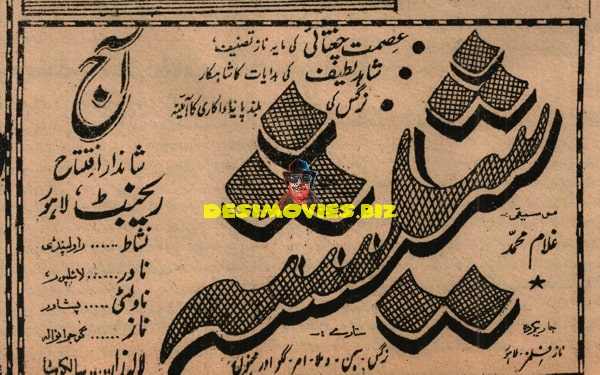 عصمت چغتائی کی مایہ ناز تصنیف،
شاہد لطیف کی ہدایات کا شاہکار
نرگس کی بلند پایہ اداکاری کا آئینہ
شیشہ
آج
شاندار افتتاح
ریجنٹ، لاہور
نشاط ...... راولپنڈی
نادر ...... لائلپور
ناولٹی ..... پشاور
ناز ..... گوجرانوالہ
لالہ زار ... سیالکوٹ
موسیقی:
غلام محمد
جاری کردہ
ناز فلمز لاہور
ستارے :-
نرگس، سجن، وملا، امر، گلو اور مجنوں
DESIMOVIES.BIZ